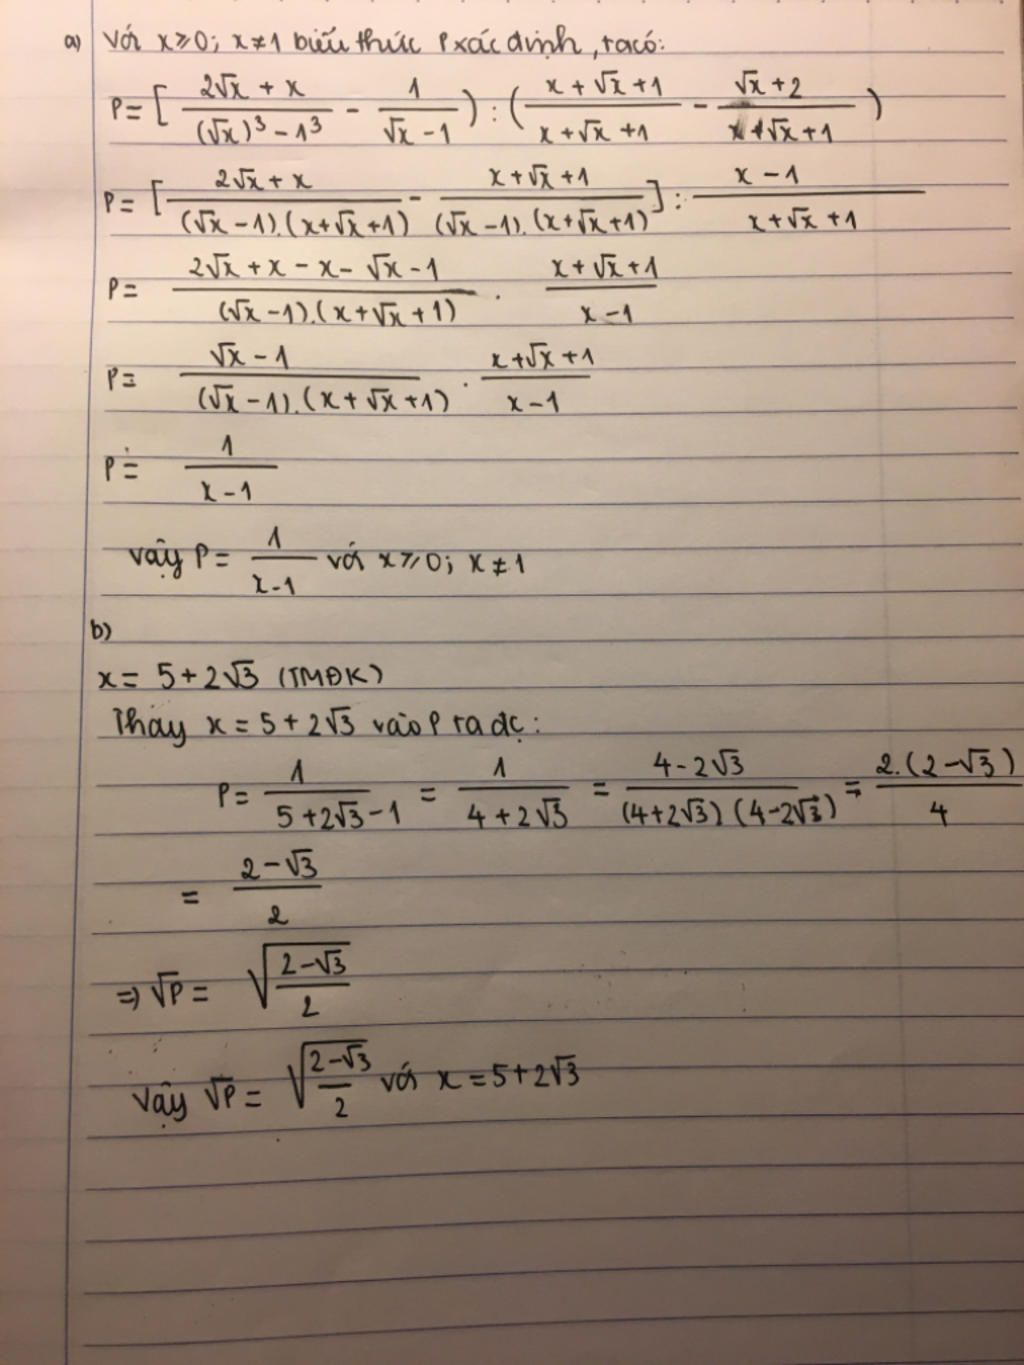 a) Với x ≥ 0; x ≠ 1 biểu thức P xác định, ta có:
P = [ (2√x + x)/((√x)³ - 1³) - 1/(√x - 1) ) : ( (x + √x + 1)/(x + √x + 1) - (√x + 2)/(x + √x + 1) )
P = [ (2√x + x)/((√x - 1).(x + √x + 1)) - (x + √x + 1)/((√x - 1).(x + √x + 1)) ] : (x - 1)/(x + √x + 1)
P = (2√x + x - x - √x - 1)/((√x - 1).(x + √x + 1)) . (x + √x + 1)/(x - 1)
P = (√x - 1)/((√x - 1).(x + √x + 1)) . (x + √x + 1)/(x - 1)
P = 1/(x - 1)
Vậy P = 1/(x - 1) với x ≥ 0; x ≠ 1
b)
x = 5 + 2√3 (TMĐK)
Thay x = 5 + 2√3 vào P ta đc:
P = 1/(5 + 2√3 - 1) = 1/(4 + 2√3) = (4 - 2√3)/((4 + 2√3)(4 - 2√3)) = (2.(2 - √3))/4
= (2 - √3)/2
⇒ √P = √((2 - √3)/2)
Vậy √P = √((2 - √3)/2) với x = 5 + 2√3